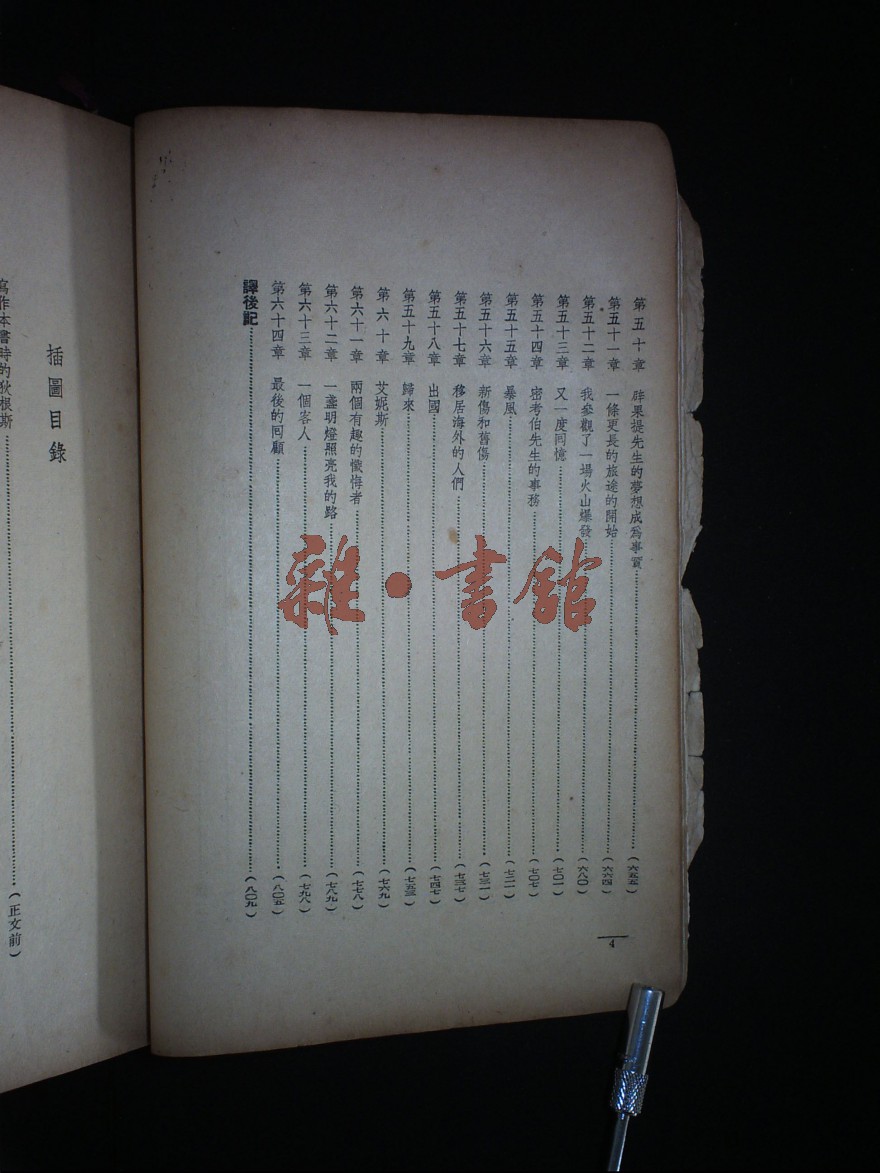 第五十章 辟果提先生的夢想成爲事實……(六五五)
第五十一章 一條更長的旅途的開始……(六六四)
第五十二章 我參觀了一場火山爆發……(六八〇)
第五十三章 又一度回憶……(七〇一)
第五十四章 密考伯先生的事務……(七〇七)
第五十五章 暴風……(七二一)
第五十六章 新傷和舊傷……(七三一)
第五十七章 移居海外的人們……(七三七)
第五十八章 出國……(七四七)
第五十九章 歸來……(七五三)
第六十章 艾妮斯……(七六九)
第六十一章 兩個有趣的懺悔者……(七七八)
第六十二章 一盞明燈照亮我的路……(七八九)
第六十三章 一個客人……(七九八)
第六十四章 最後的回顧……(八〇五)
譯後記……(八〇九)
4
插圖目錄
寫作本書時的狄根斯……(正文前)
雜·書館